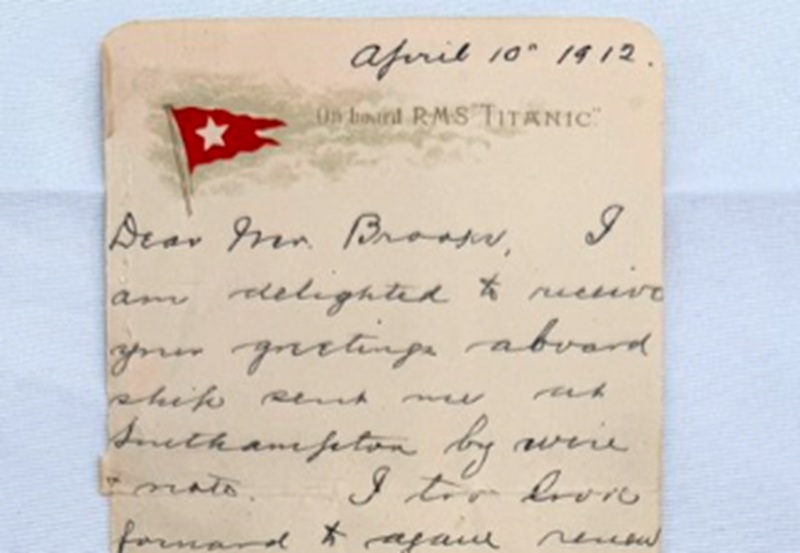 April 10" 1912.
On board R.M.S "TITANIC"
Dear Mr. Brooks, I
am delighted to receive
your greetings aboard
ship sent me at
Southampton by wire
& note. I too look
forward to again renew